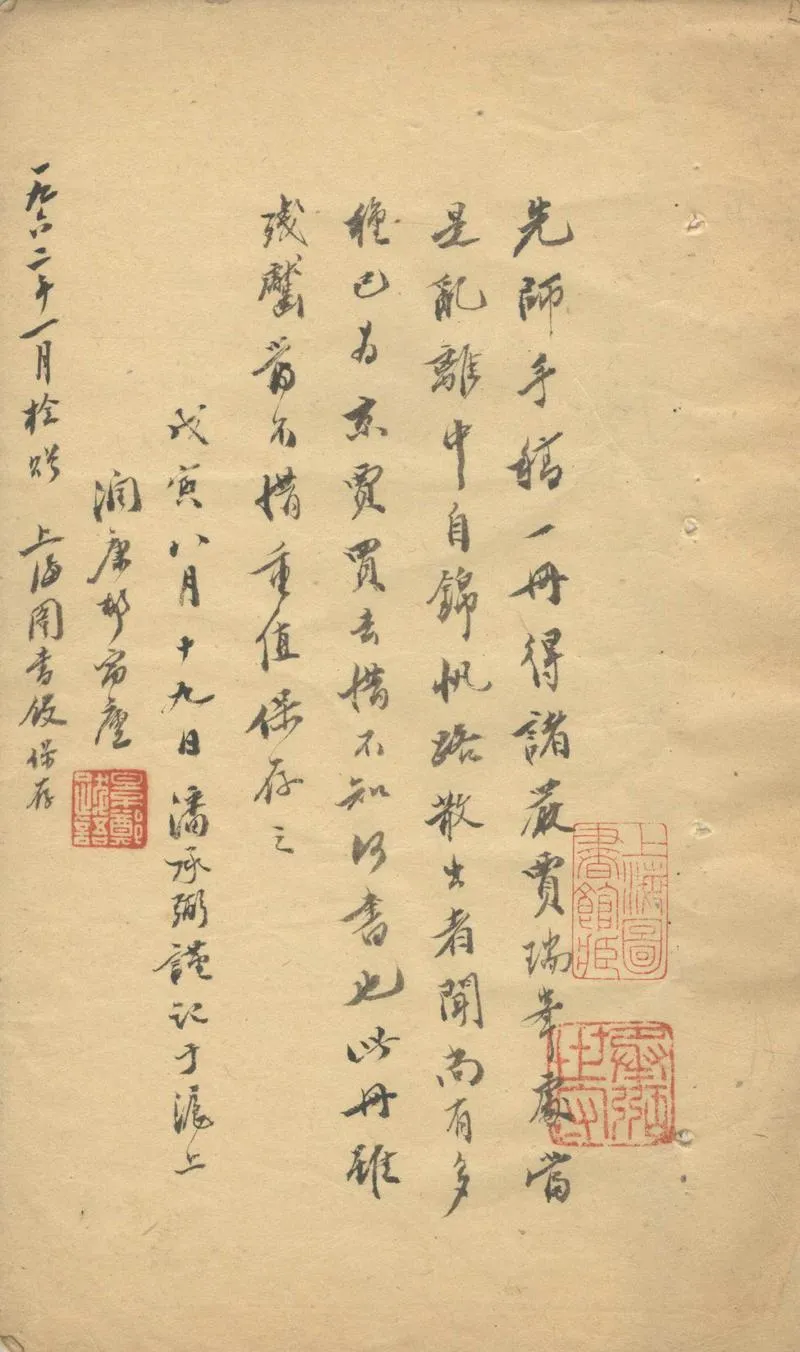 先師手稿一册得諸嚴賈瑞峯處當
是亂離中自錦帆路散出者聞尚有多
種已為京賈買去惜不知何書也此册雖
殘齾當不惜重值保存之
戊寅八月十九日潘承弼謹記于滬上
潤康邨寓廬
一九六二年一月檢贈 上海圖書館保存
上海圖書館藏
承弼
景鄭